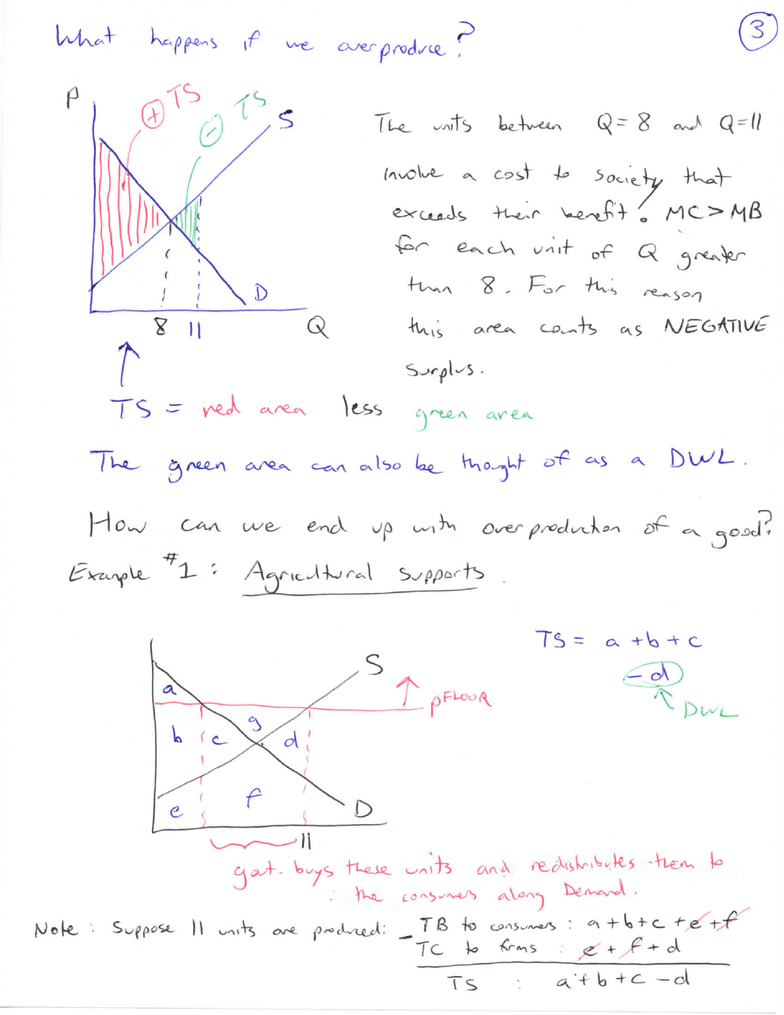 What happens if we overproduce?
3
P
+ TS
- TS
S
D
8 11 Q
The units between Q=8 and Q=11
involve a cost to society that
exceeds their benefit! MC>MB
for each unit of Q greater
than 8. For this reason
this area counts as NEGATIVE
surplus.
TS = red area less green area
The green area can also be thought of as a DWL.
How can we end up with overproduction of a good?
Example #1: Agricultural supports.
TS = a+b+c
-d
DWL
S
PFLOOR
a
b c g d
e f D
11
gvt. buys these units and redistributes them to
the consumers along Demand.
Note: Suppose 11 units are produced: TB to consumers: a+b+c+e+f
- TC to firms: e+f+d
TS : a+b+c-d